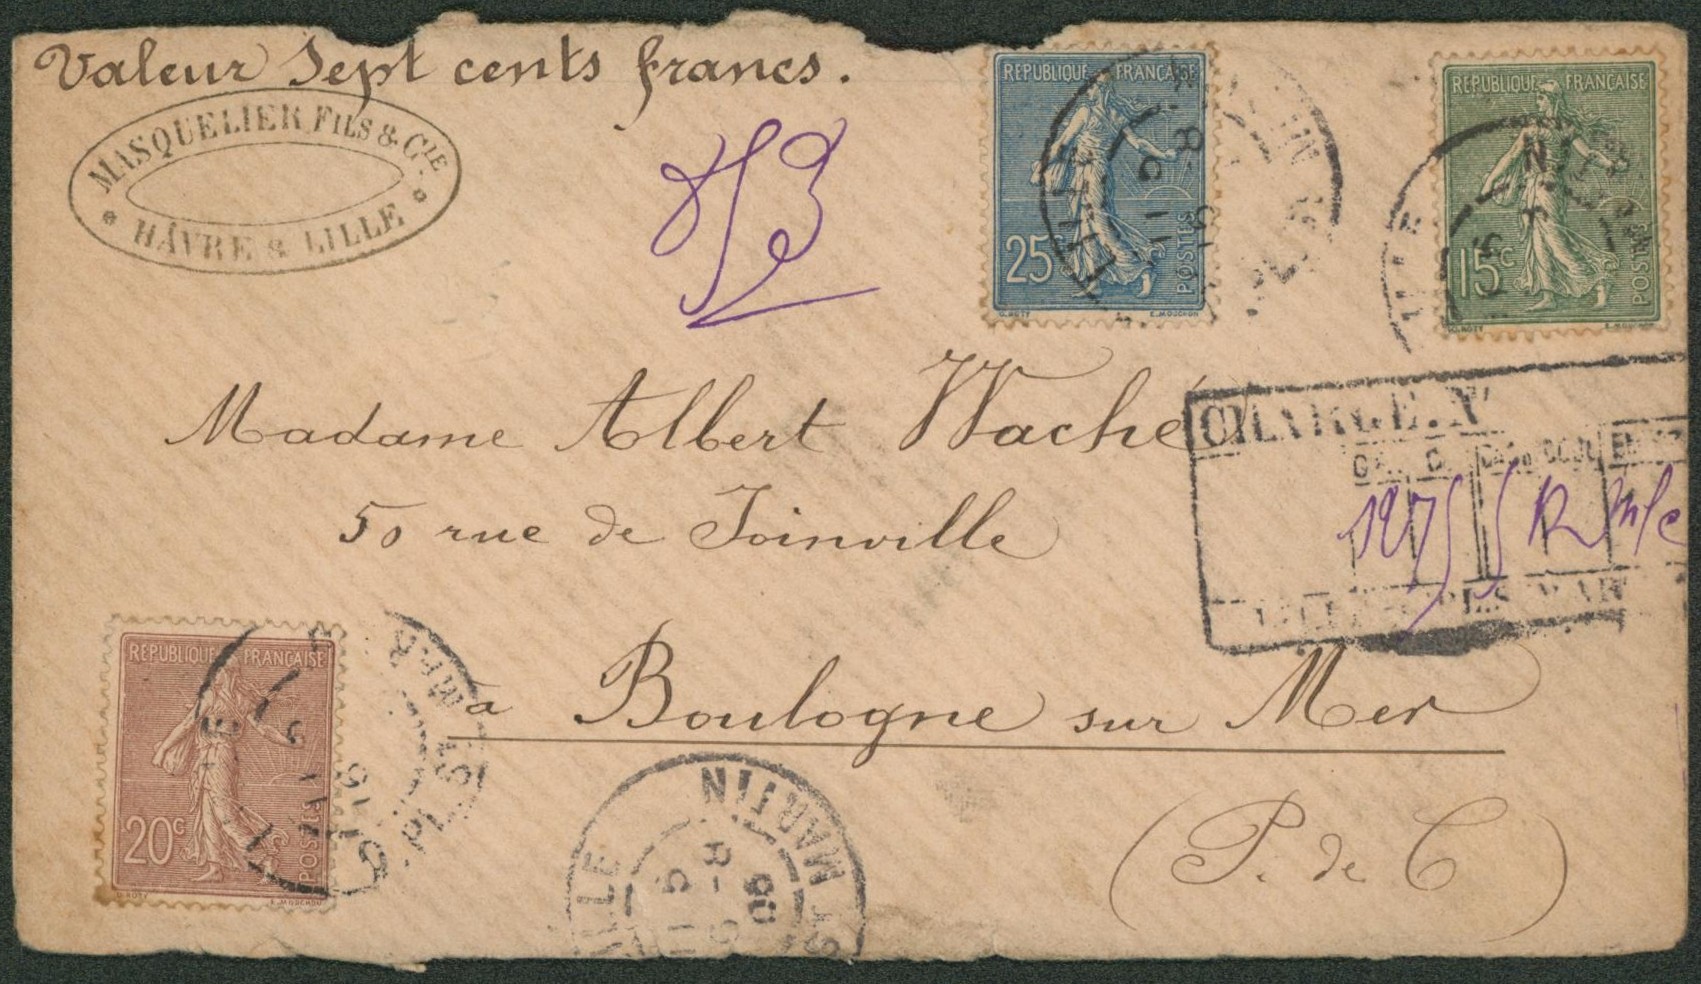 Valeur Sept cents francs.
MASQUELIER FILS & CIE.
HÂVRE & LILLE
REPUBLIQUE FRANÇAISE
25c
POSTES
O. ROTY
E. MOUCHON
REPUBLIQUE FRANÇAISE
15c
POSTES
O. ROTY
Madame Albert Waché
CHARGE. N
50 rue de Joinville
à Boulogne sur Mer
(P. de C)
REPUBLIQUE FRANÇAISE
20c
POSTES
O. ROTY
E. MOUCHON
LILLE ST MARTIN